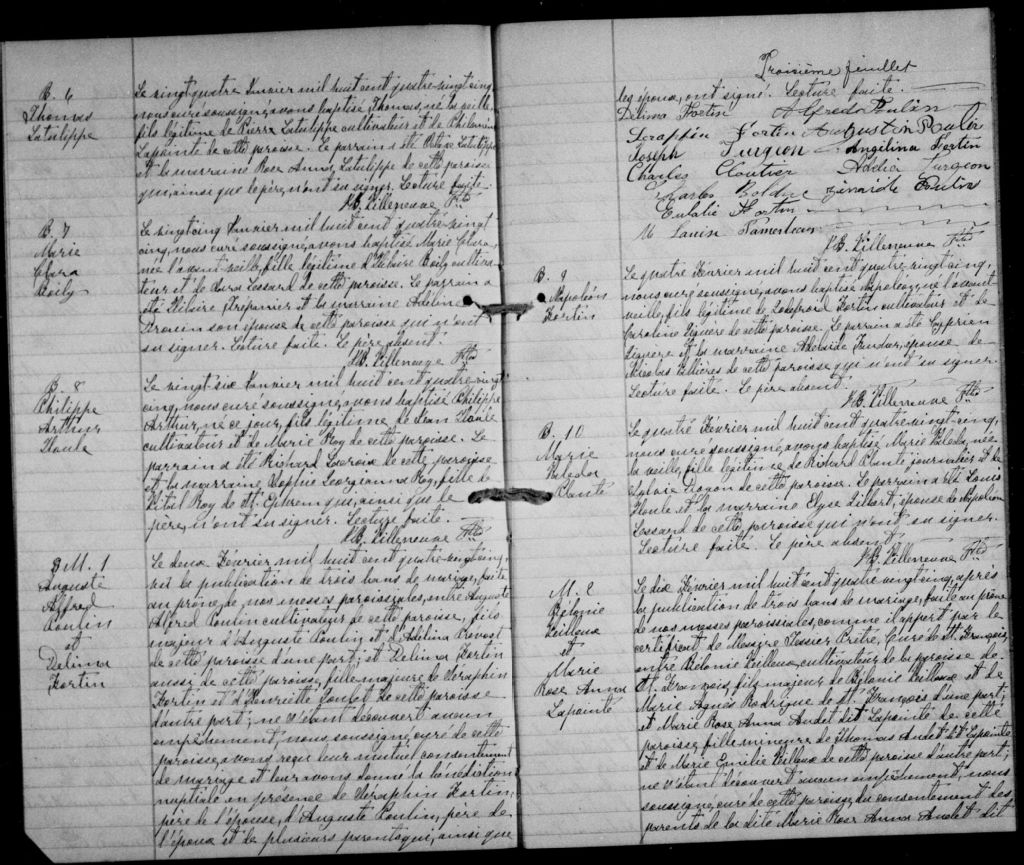 B. 6
Thomas
Latulippe
Le vingt quatre Janvier mil huit cent quatre-vingt cinq
nous curé soussigné, avons baptisé Thomas, né la veille,
fils légitime de Pierre Latulippe cultivateur et de Philomène
Lapointe de cette paroisse. Le parrain a été Latulippe
et la marraine Rose Anna Latulippe de cette paroisse
qui, ainsi que le père, n'ont su signer. Lecture faite.
J.B. Villeneuve Ptre
B. 7
Marie
Clara
Boily
Le vingt cinq Janvier mil huit cent quatre-vingt
cinq, nous curé soussigné, avons baptisé Marie Clara
née l'avant veille, fille légitime d'Hilaire Boily cultiva-
teur et de Lessard de cette paroisse. Le parrain a
été Hilaire Drepanier et la marraine Adeline
Drouin son épouse de cette paroisse qui n'ont
su signer. Lecture faite. Le père absent.
J.B. Villeneuve Ptre
B. 8
Philippe
Arthur
Houle
Le vingt six Janvier mil huit cent quatre-vingt
cinq, nous curé soussigné, avons baptisé Philippe
Arthur, né ce jour, fils légitime de Jean Houle
cultivateur et de Marie Roy de cette paroisse. Le
parrain a été Richard Lacroix de cette paroisse
et la marraine Sophie Georgianna Roy, fille de
Vital Roy de St. Ephrem qui, ainsi que le
père, n'ont su signer. Lecture faite.
J.B. Villeneuve Ptre
M. 1
Auguste
Alfred
Poulin
et
Delima
Fortin
Le deux Février mil huit cent quatre-vingt cinq,
vu la publication de trois bans de mariage, faite
au prône de nos messes paroissiales, entre Auguste
Alfred Poulin cultivateur de cette paroisse, fils
majeur d'Auguste Poulin et d'Adelina Provost
de cette paroisse d'une part; et Delima Fortin
aussi de cette paroisse, fille majeure de Séraphin
Fortin et d'Henriette Poulet de cette paroisse
d'autre part; ne s'étant découvert aucun
empêchement, nous soussigné, curé de cette
paroisse, avons reçu leur mutuel consentement
de mariage et leur avons donné la bénédiction
nuptiale en présence de Séraphin Fortin,
père de l'épouse, d'Auguste Poulin, père de
l'époux et de plusieurs parents qui, ainsi que
Troisième feuillet
les époux, ont signé. Lecture faite.
Delima Fortin Alfred Poulin
Seraffin Fortin Augustin Poulin
Joseph Turgeon Angilina Fortin
Charles Cloutier Addéia Turgeon
Charles Bolduc Poulin
Eulalie Fortin
M Louise
J.B. Villeneuve Ptre
B. 9
Napoléon
Fortin
Le quatre Février mil huit cent quatre-vingt cinq,
nous curé soussigné, avons baptisé Napoléon, né l'avant-
veille, fils légitime de Fortin cultivateur et de
Caroline Giguère de cette paroisse. Le parrain a été Cyprien
Giguère et la marraine Adelaide épouse de
Nicolas de cette paroisse qui n'ont su signer.
Lecture faite. Le père absent.
J.B. Villeneuve Ptre
B. 10
Marie
Aleda
Plante
Le quatre Février mil huit cent quatre-vingt-cinq,
nous curé soussigné, avons baptisé Marie Aleda, née
la veille, fille légitime de Richard Plante journalier et de
Doyon de cette paroisse. Le parrain a été Louis
Plante et la marraine Elyse Gilbert, épouse de Napoléon
Lessard de cette paroisse qui n'ont su signer.
Lecture faite. Le père absent.
J.B. Villeneuve Ptre
M. 2
Belonie
Veilleux
et
Marie
Rose Anna
Lapointe
Le dix Février mil huit cent quatre vingt cinq, après
la publication de trois bans de mariage, faite au prône
de nos messes paroissiales, comme il appert par le
certificat de Messire Tessier Prêtre, Curé de St. François,
entre Belonie Veilleux, cultivateur de la paroisse de
St. François, fils majeur de Belonie Veilleux et de
Marie Agnès Rodrigue de St. François d'une part;
et Marie Rose Anna Audet dit Lapointe de cette
paroisse, fille mineure de Thomas Audet dit Lapointe
et de Marie Emélie Veilleux de cette paroisse d'autre part;
ne s'étant découvert aucun empêchement, nous
soussigné, curé de cette paroisse, du consentement des
parents de la dite Marie Rose Anna Audet dit